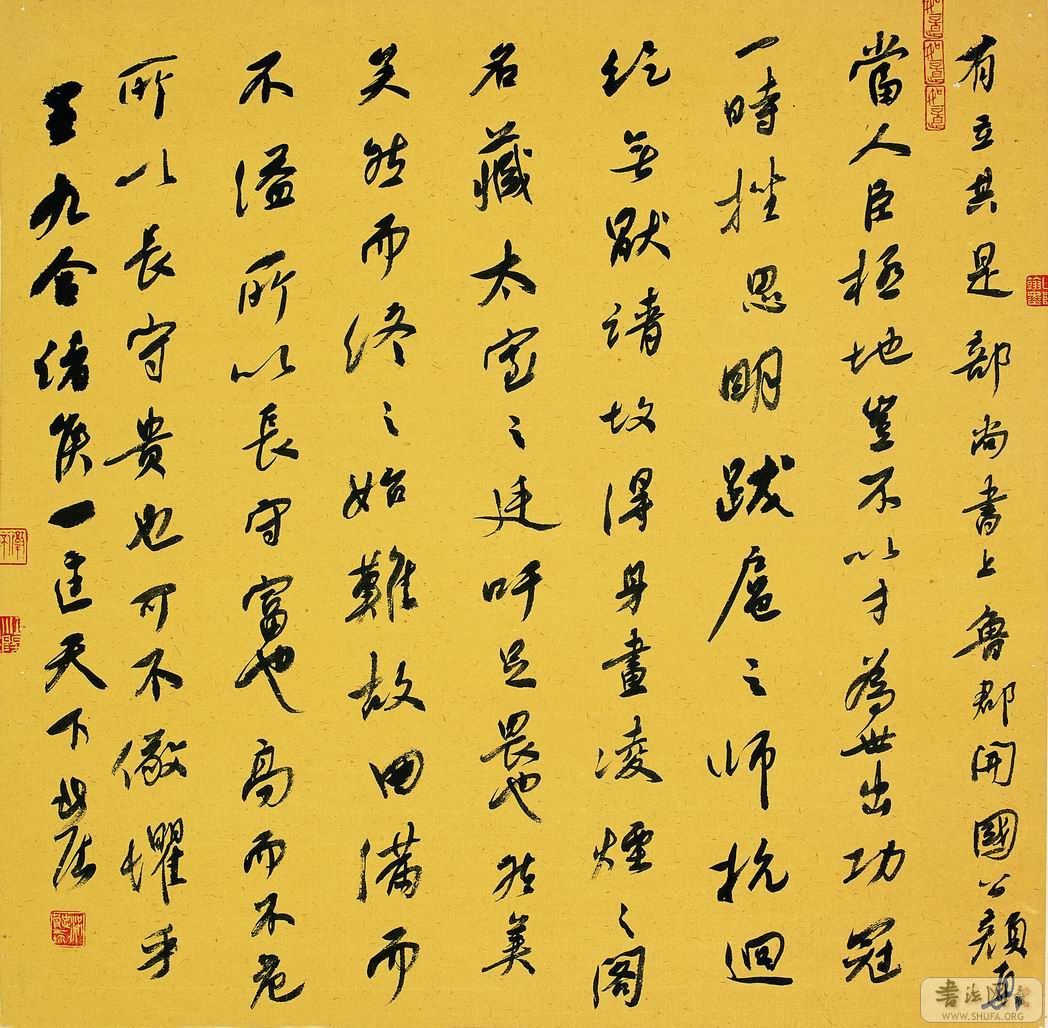 有立其是部尚書上魯郡開國公顏真
當人臣極地豈不以才為世出功冠
一時挫思明跋扈之師抗迴
紇無猒請故得身畫凌煙之閣
名藏太室之廷吁足畏也然美
矣然而終之始難故曰滿而
不溢所以長守富也高而不危
所以長守貴也可不儆懼乎
王九合諸侯一匡天下
WWW.SHUFA.ORG